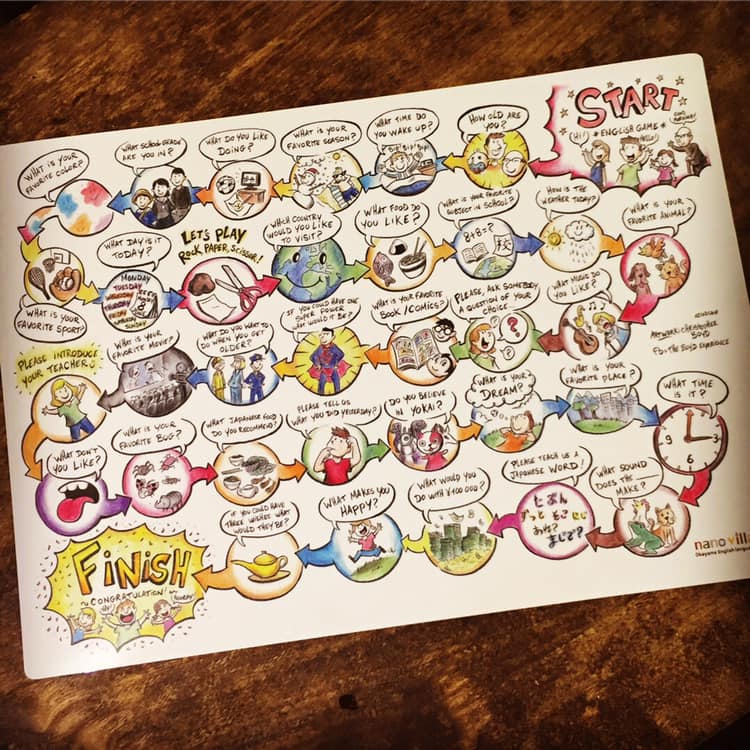 START
"ENGLISH GAME"
Hi!
Hello!
HOW OLD ARE
YOU?
WHAT TIME DO
YOU WAKE UP?
WHAT IS YOUR
FAVORITE SEASON?
WHAT DO YOU LIKE
DOING?
WHAT SCHOOL GRADE
ARE YOU IN?
WHAT IS YOUR
FAVORITE COLOR?
WHAT IS YOUR
FAVORITE SPORT?
WHAT DAY IS IT
TODAY?
MONDAY
TUESDAY
THURSDAY
FRIDAY
SUNDAY
LET'S PLAY
ROCK, PAPER, SCISSOR!
WHICH COUNTRY
WOULD YOU LIKE
TO VISIT?
WHAT FOOD DO
YOU LIKE?
WHAT IS YOUR FAVORITE
SUBJECT IN SCHOOL?
8+8=?
HOW IS THE
WEATHER TODAY?
WHAT IS YOUR
FAVORITE ANIMAL?
WHAT MUSIC DO
YOU LIKE?
PLEASE, ASK SOMEBODY
A QUESTION OF YOUR
CHOICE
?
WHAT IS YOUR FAVORITE
BOOK /COMICS?
IF YOU COULD HAVE ONE
SUPER POWER
WHAT WOULD IT BE?
WHAT DO YOU WANT TO
DO WHEN YOU GET
OLDER?
WHAT IS YOUR
FAVORITE MOVIE?
PLEASE INTRODUCE
YOUR TEACHER
WHAT DON'T
YOU LIKE?
WHAT IS YOUR
FAVORITE BUG?
WHAT JAPANESE FOOD
DO YOU RECOMMEND?
PLEASE TELL US
WHAT YOU DID YESTERDAY?
DO YOU BELIEVE
IN YOKAI?
WHAT IS YOUR
DREAM?
WHAT IS YOUR
FAVORITE PLACE?
WHAT TIME
IS IT?
WHAT SOUND
DOES THE
MAKE?
PLEASE TEACH US A
JAPANESE WORD!
WHAT WOULD YOU
DO WITH
WHAT MAKES YOU
HAPPY?
IF YOU COULD HAVE
THREE WISHES WHAT
WOULD THEY BE?
FINISH
CONGRATULATION!
ARTWORK: CHRISTOPHER
BOYD
FB: THE BOYD EXPERIENCE
nano villa
Okayama English